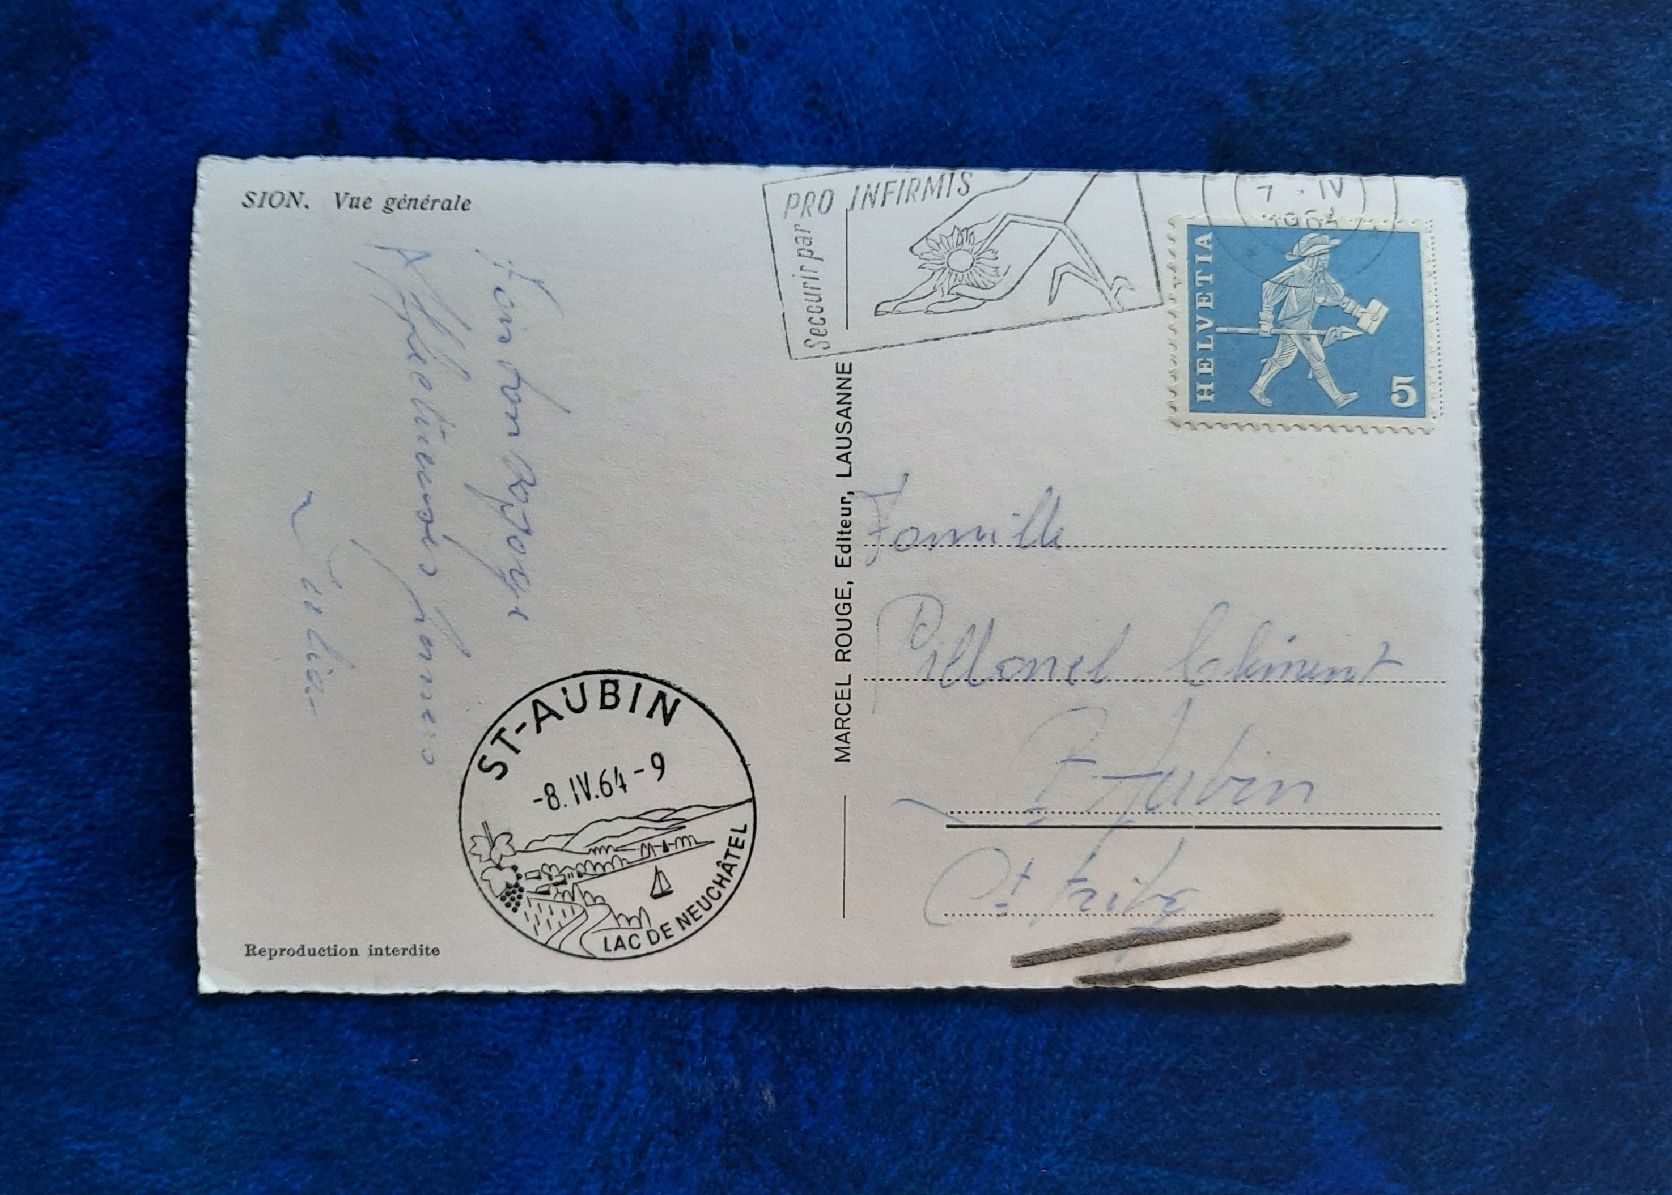 SION. Vue générale
Affectueuses pensées
Reproduction interdite
ST-AUBIN
-8.IV.64-9
LAC DE NEUCHÂTEL
MARCEL ROUGE, Editeur, LAUSANNE
PRO INFIRMIS
Secourir par
7·IV
1964
HELVETIA
5
Famille
Pillonel Clément
St. Aubin